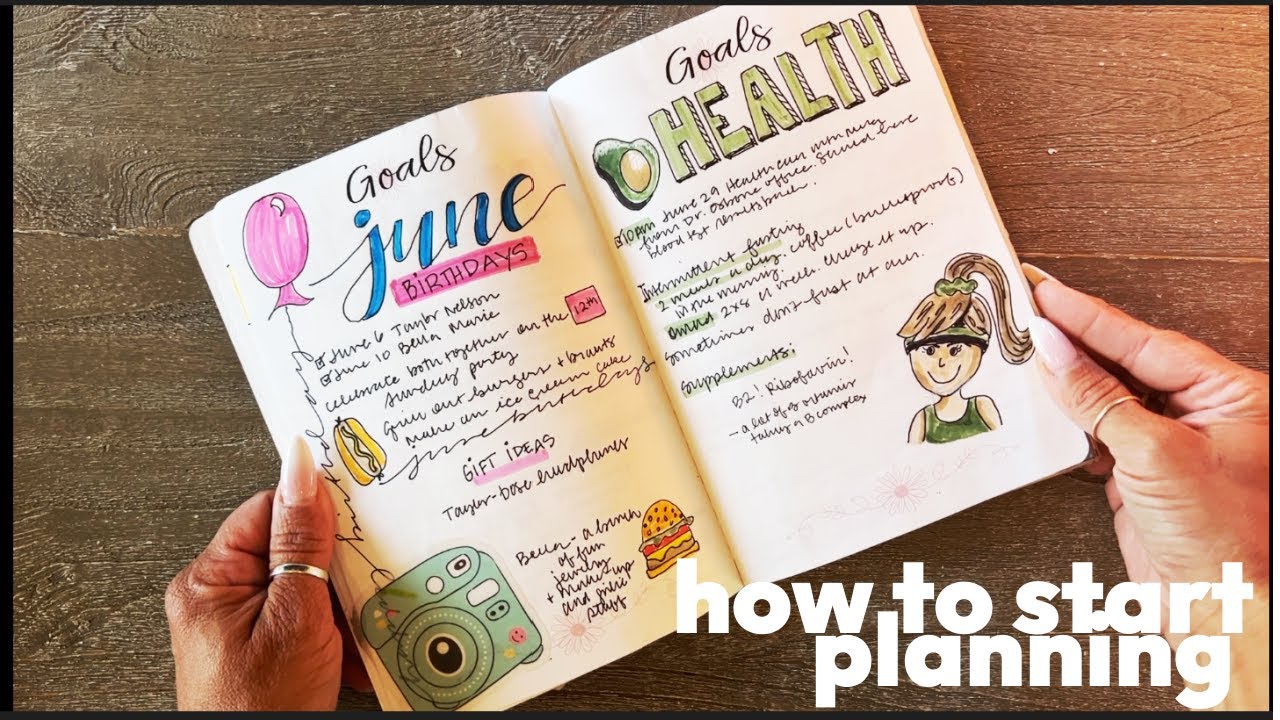 Goals
june
BIRTHDAYS
June 6 Taylor Nelson
June 10 Bella Marie
celebrate both together on the 12th
Sunday party
Grill out burgers + brauts
make an ice cream cake
june birthdays
GIFT IDEAS
Taylor- bose headphones
Bella - a bunch
of fun
jewelry
+ make up
and misc
stuff
birthdays
Goals
HEALTH
10am June 29 Health call with
from Dr. Osborne office.
blood test results
Intermittent fasting
2 meals a day. coffee (bulletproof)
in the morning.
omad a week. change it up.
Sometimes don't fast at all.
supplements:
B2! Ribofavin!
- a lot of b vitamins
taking a B complex
how to start
planning